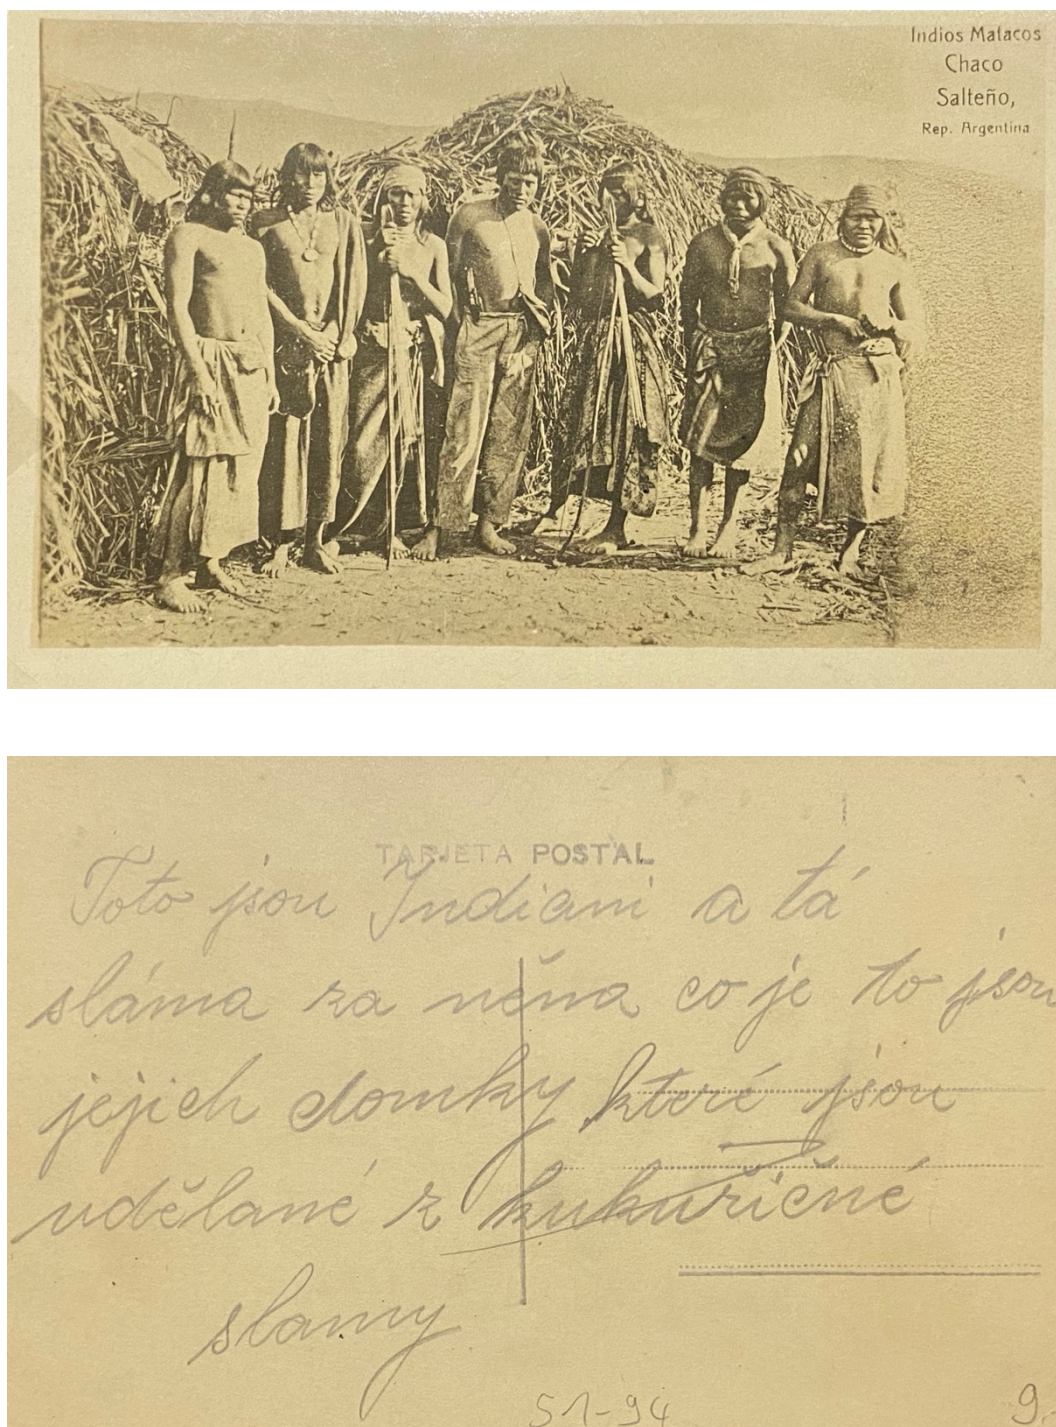 Indios Matacos
Chaco
Salteño,
Rep. Argentina
TARJETA POSTAL
Toto jsou Indiani a tá
sláma za něma co je to jsou
jejich domky které jsou
udělané z kukuřičné
slamy
51-94
9